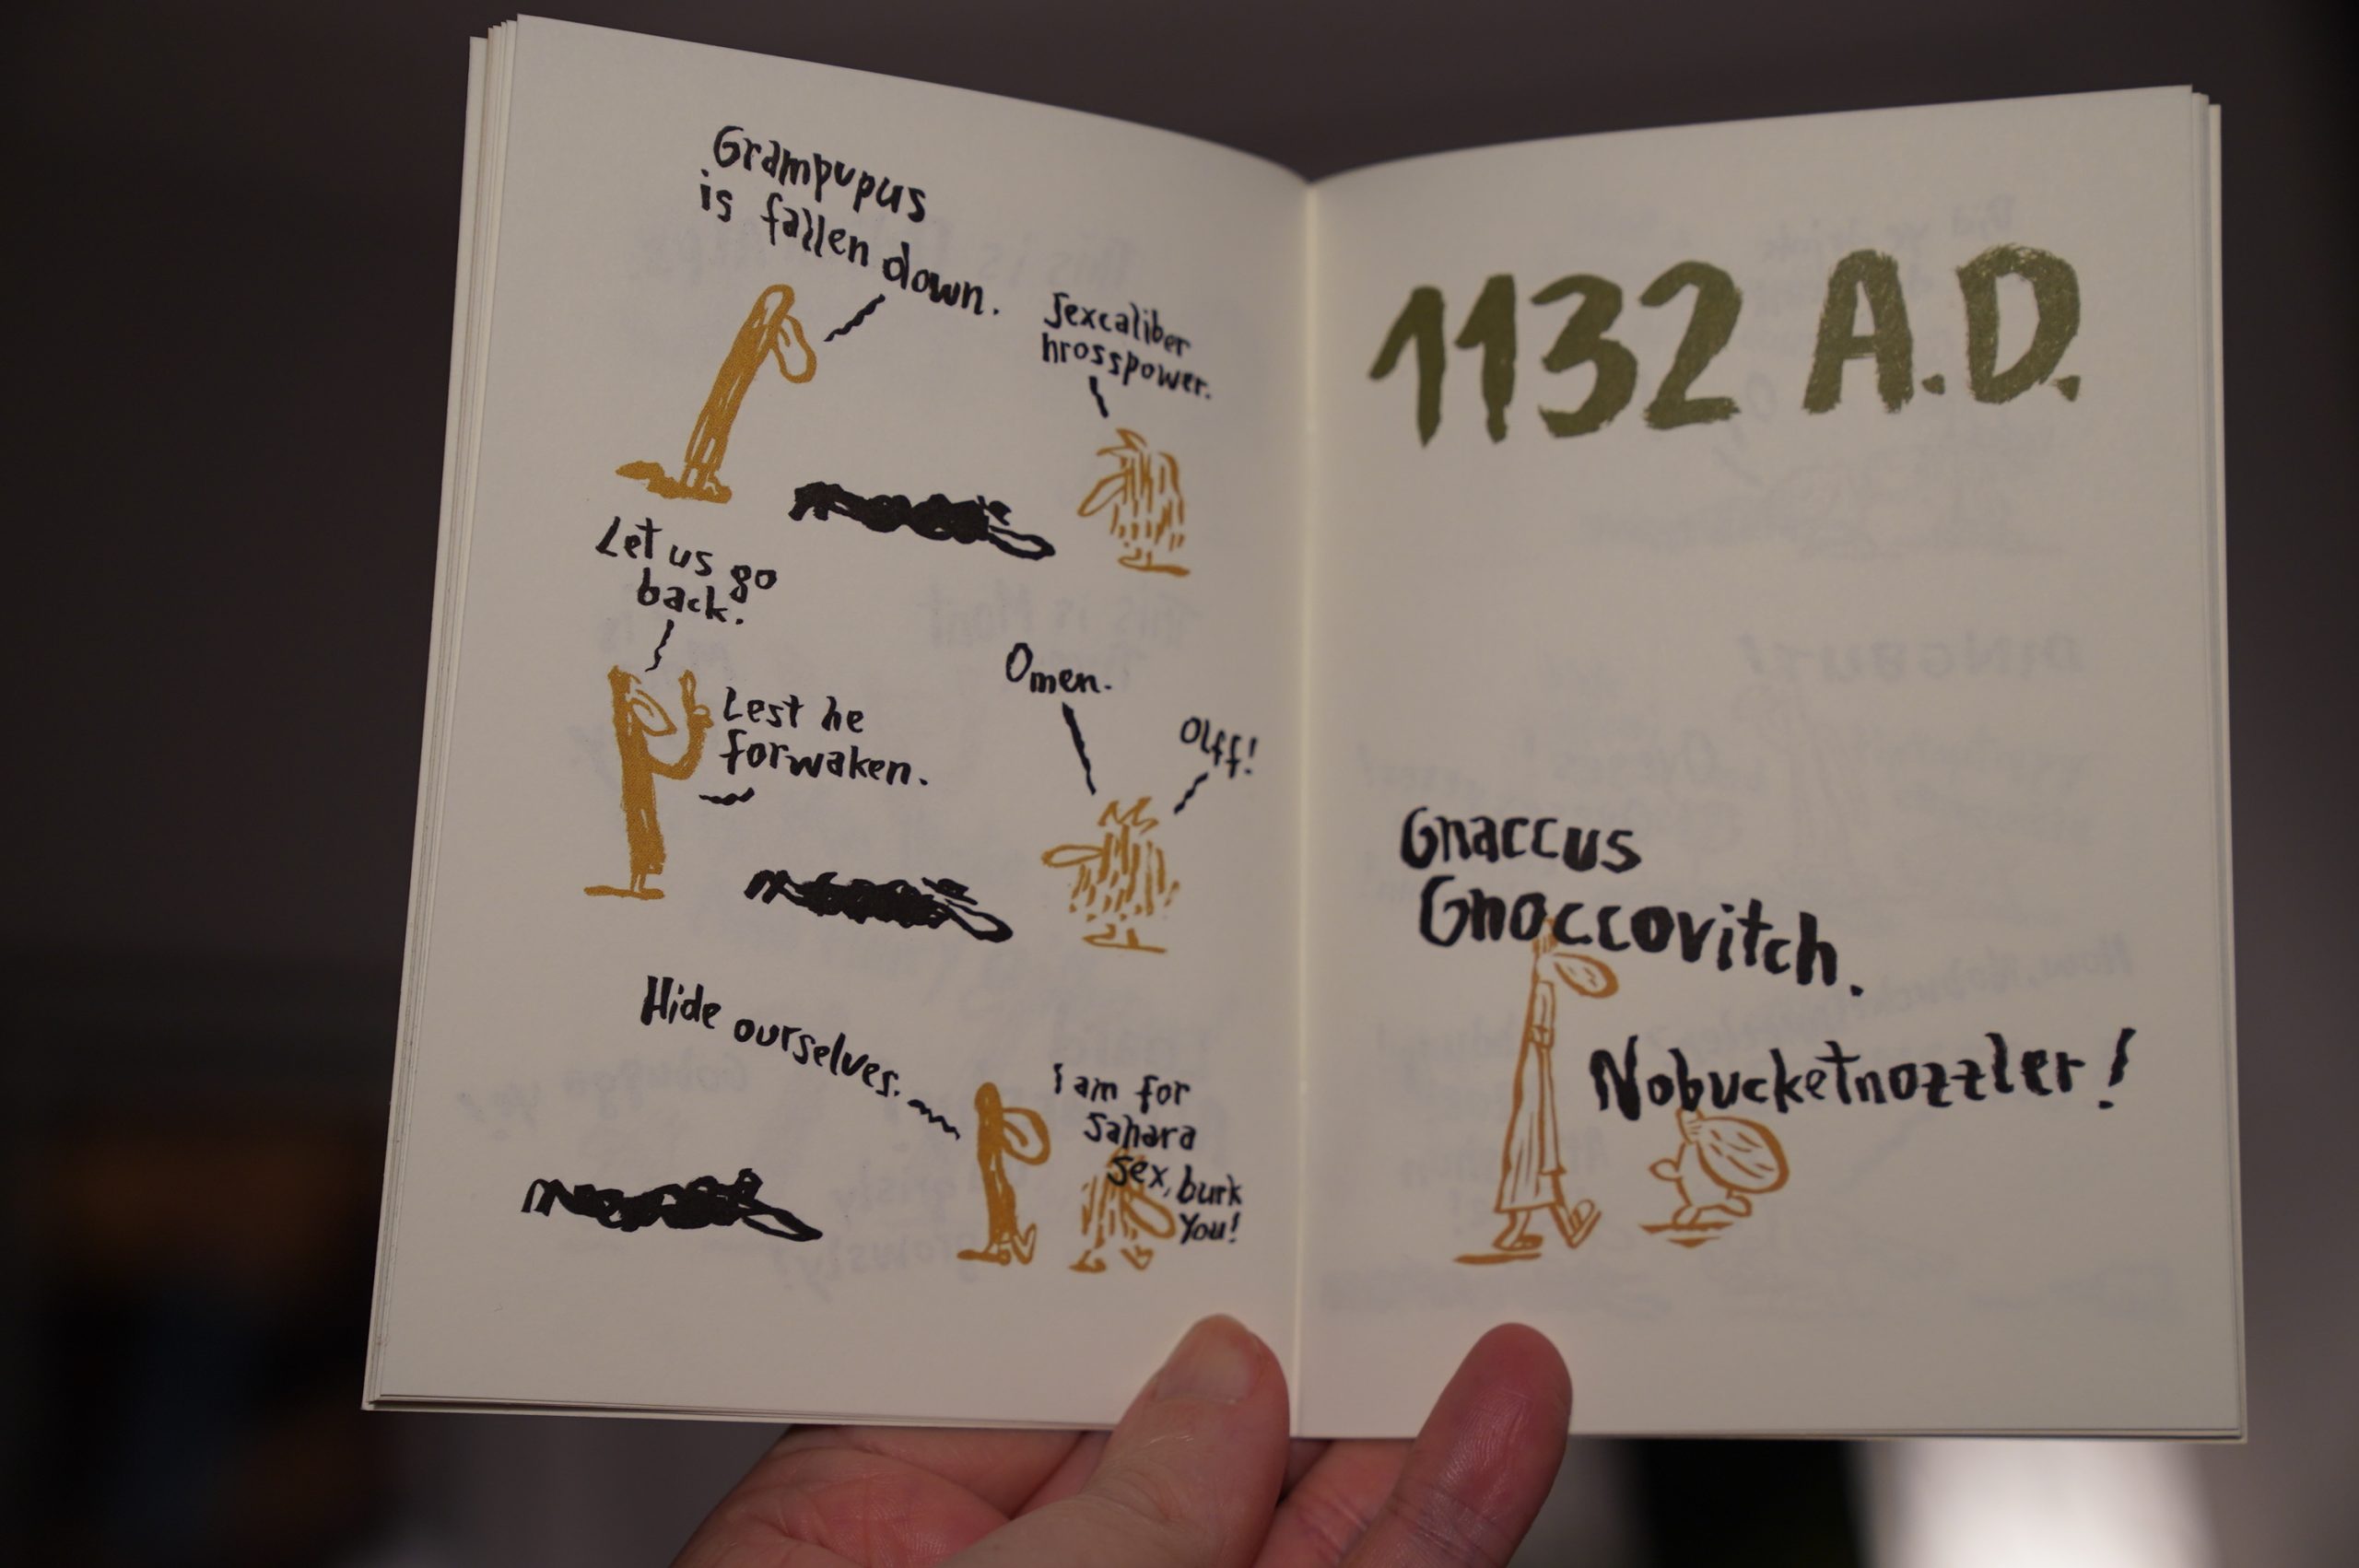 Grampupus
is fallen down.
Sexcaliber
hrosspower.
Let us go
back.
Lest he
forwaken.
Omen.
Olff!
Hide ourselves.
I am for
Sahara
Sex, burk
You!
1132 A.D.
Gnaccus
Gnoccovitch.
Nobucketnozzler!